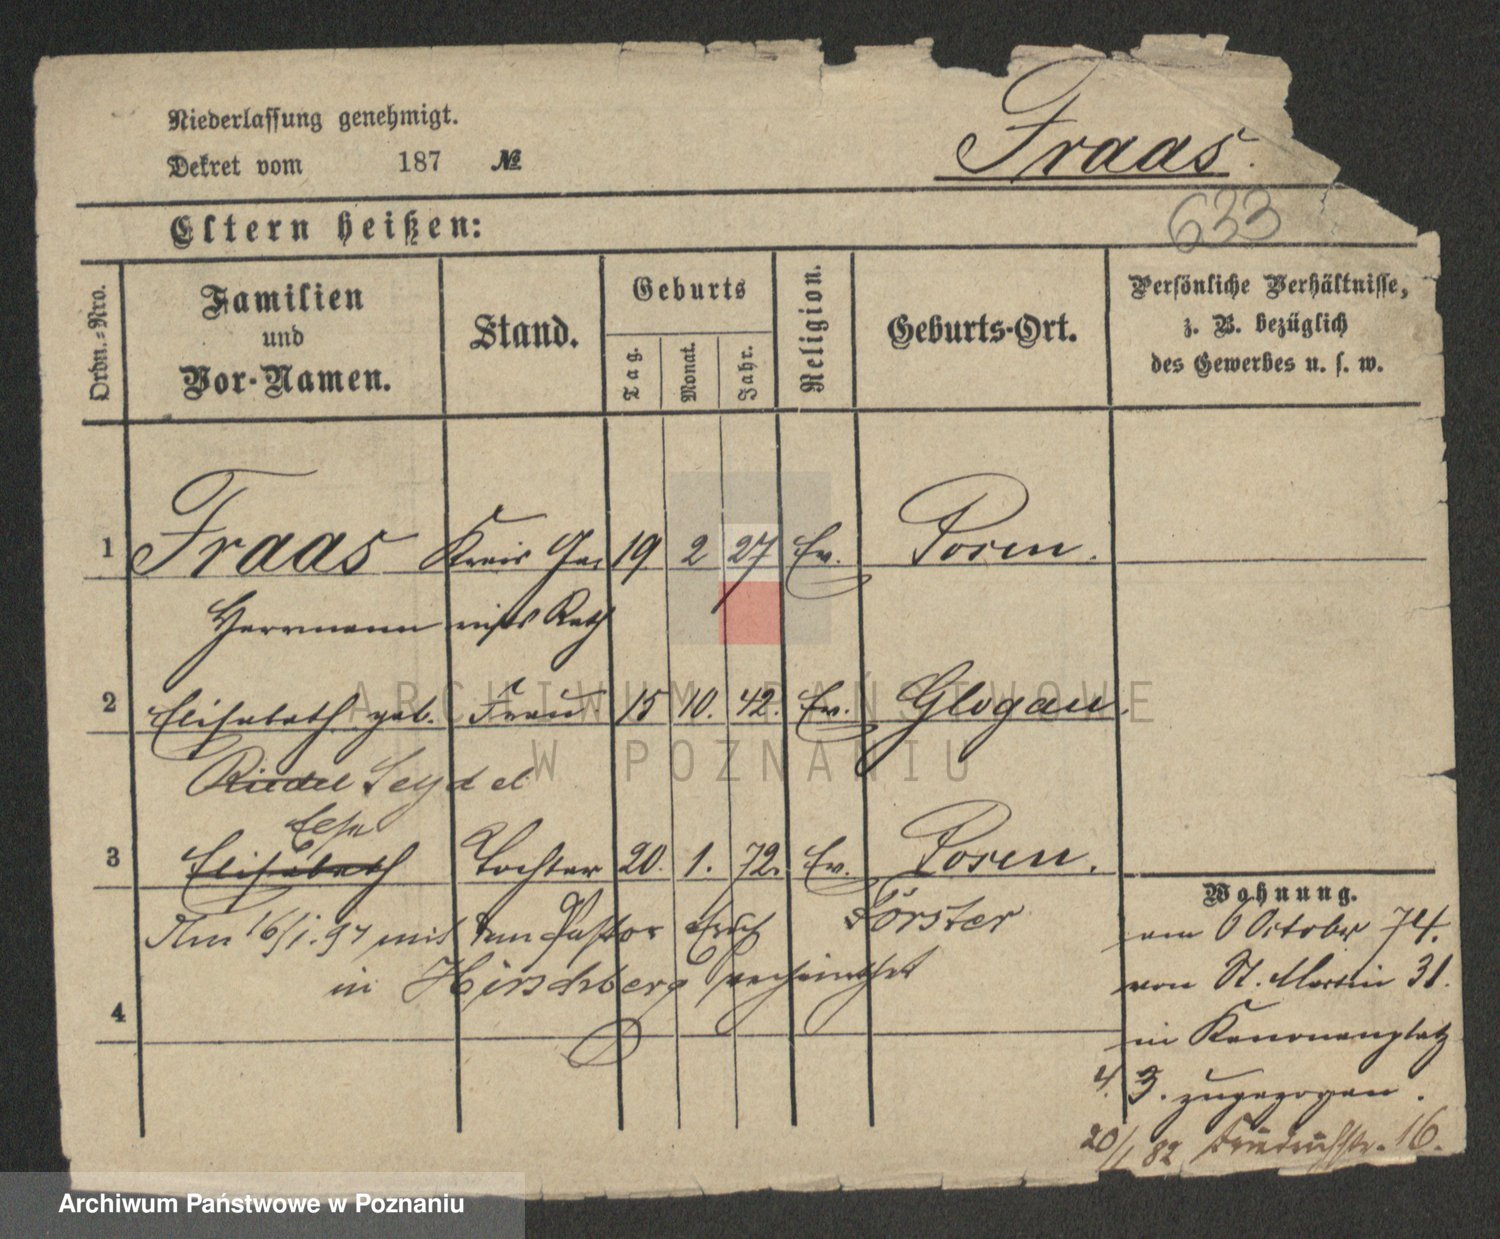 Niederlassung genehmigt.
Dekret vom 187 №
Fraas.
633
Eltern heißen:
Ordn.-Nro.
Familien
und
Vor-Namen.
Stand.
Geburts
Tag.
Monat.
Jahr.
Religion.
Geburts-Ort.
Persönliche Verhältnisse,
z. B. bezüglich
des Gewerbes u. s. w.
1 Fraas Kreis Ge 19 2 27 Ev. Posen.
Herrmann richts Rath
2 Elisabeth geb. Frau 15 10. 42. Ev. Glogau.
Riedel Seydel
Else
3 Elisabeth Tochter 20. 1. 72. Ev. Posen.
Am 16/1. 97 mit dem Pastor Erich Förster
in Hirschberg verheirathet
4
Wohnung.
am October 74.
von St. Martin 31.
in Kanonenplatz
3. zugezogen.
20/1 82 Friedrichstr. 16.
ARCHIWUM PAŃSTWOWE
W POZNANIU
Archiwum Państwowe w Poznaniu